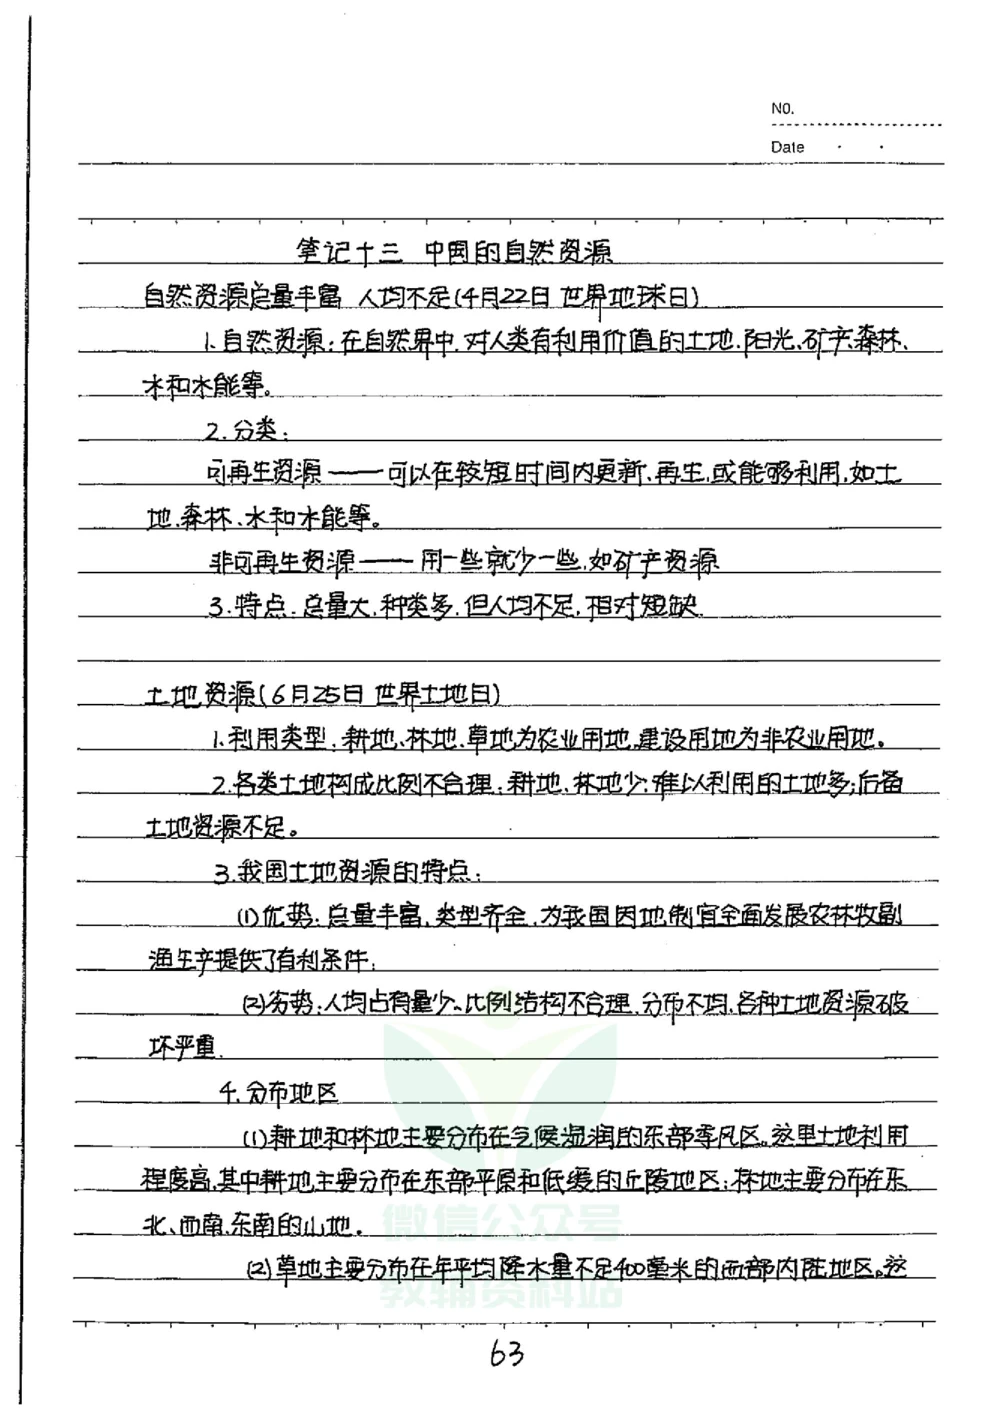 NO.
Date
笔记十三 中国的自然资源
自然资源总量丰富 人均不足(4月22日 世界地球日)
1.自然资源:在自然界中,对人类有利用价值的土地、阳光、矿产、森林、
水和水能等。
2.分类:
可再生资源——可以在较短时间内更新、再生,或能够利用,如土
地、森林、水和水能等。
非可再生资源——用一些就少一些,如矿产资源
3.特点:总量大,种类多,但人均不足,相对短缺
土地资源(6月25日 世界土地日)
1.利用类型:耕地、林地、草地为农业用地,建设用地为非农业用地。
2.各类土地构成比例不合理:耕地、林地少;难以利用的土地多;后备
土地资源不足。
3.我国土地资源的特点:
(1)优势:总量丰富,类型齐全,为我国因地制宜全面发展农林牧副
渔生产提供了有利条件;
(2)劣势:人均占有量少、比例结构不合理,分布不均,各种土地资源破
坏严重.
4.分布地区
(1)耕地和林地主要分布在气候湿润的东部季风区。这里土地利用
程度高,其中耕地主要分布在东部平原和低缓的丘陵地区;林地主要分布在东
北、西南、东南的山地。
(2)草地主要分布在年平均降水量不足400毫米的西部内陆地区。这
微信公众号
教辅资料站
63